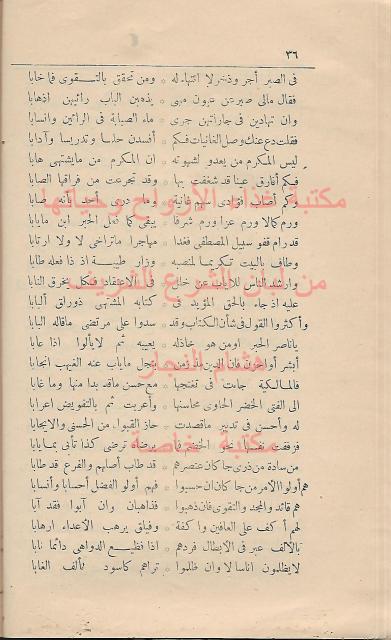 ٣٦
فى الصبر أجر وذخر لا انتهاء له ومن تحقق بالتقوى فما خابا
فقال مالى صبر عن
يذهبن الباب رائيهن اذهابا
وان تهادين فى جاراتهن جرى ماء الصبابة فى الرائين وانسابا
فقلت دع عنك وصل الغانيات فكم أفسدن حلما وتدريسا وآدابا
ليس المكرم من يعدو لشهوته ان المكرم من مايشتهى هابا
فيكم أفارق عينا قد شغفت بها وقد تجرعت من فراقها الصابا
وكم أصاب فؤادى سهم غانية وما درى أحد بأنه صابا
ورم كمالا ورم عزا ورم شرفا يبقى كما فعل الحبر ابن مايابا
قد رام قفو سبيل المصطفى فغدا مهاجرا ماتراخى لا ولا ارتابا
وطاف بالبيت تكرمة لمنصبه وزار طيبة اذ ذا فعله طابا
وارشد الناس للالباب عن خلل فى الاعتقاد فنكل يخرق النابا
عليه اذ جاء بالحق المؤيد فى كتابه المشتهى ذوراق ألبابا
وأكثروا القول فى شأن الكتاب وقد سدوا على مرتضى ماقاله البابا
ياناصر الحبر اومن هو خاذله يعيبه ثم لايألوا اذا عابا
أبشر
نجل مايابا عنه الغيهب انجابا
فالمالكية جاءت فى تغنجها مع حسن ماقد بدا منها وما غابا
الى الفتى الخضر الحاوى محاسنها وأعربت ثم بالتفويض اعرابا
له وأحسن فى تدبير ماقصدت حاز القبول من الحسنى والايجابا
فزففت نفسها نحو الخضر
برضاه ترضى كذا تأبى بمايابا
من سادة من ذرى جا كان عنصرهم قد طاب أصلهم والفرع قد طابا
هم أولوا الامر من جا كان ان حسبوا فهم أولو الفضل أحسابا وأنسابا
هم قائد والمجد والتقوى فان ذهبوا فذاهبان وان آبوا فقد آبا
لهم أكف على العافين واكفة وفيلق يرهب الاعداء ارهابا
بالالف عبر فى الابطال فردهم اذا فظيع الدواهى دائما نابا
لايظلمون اناسا لا وان ظلموا تراهم كاسود تألف الغابا
مكتبة
من لبنان
هشام النجار
مكتبة خاصة